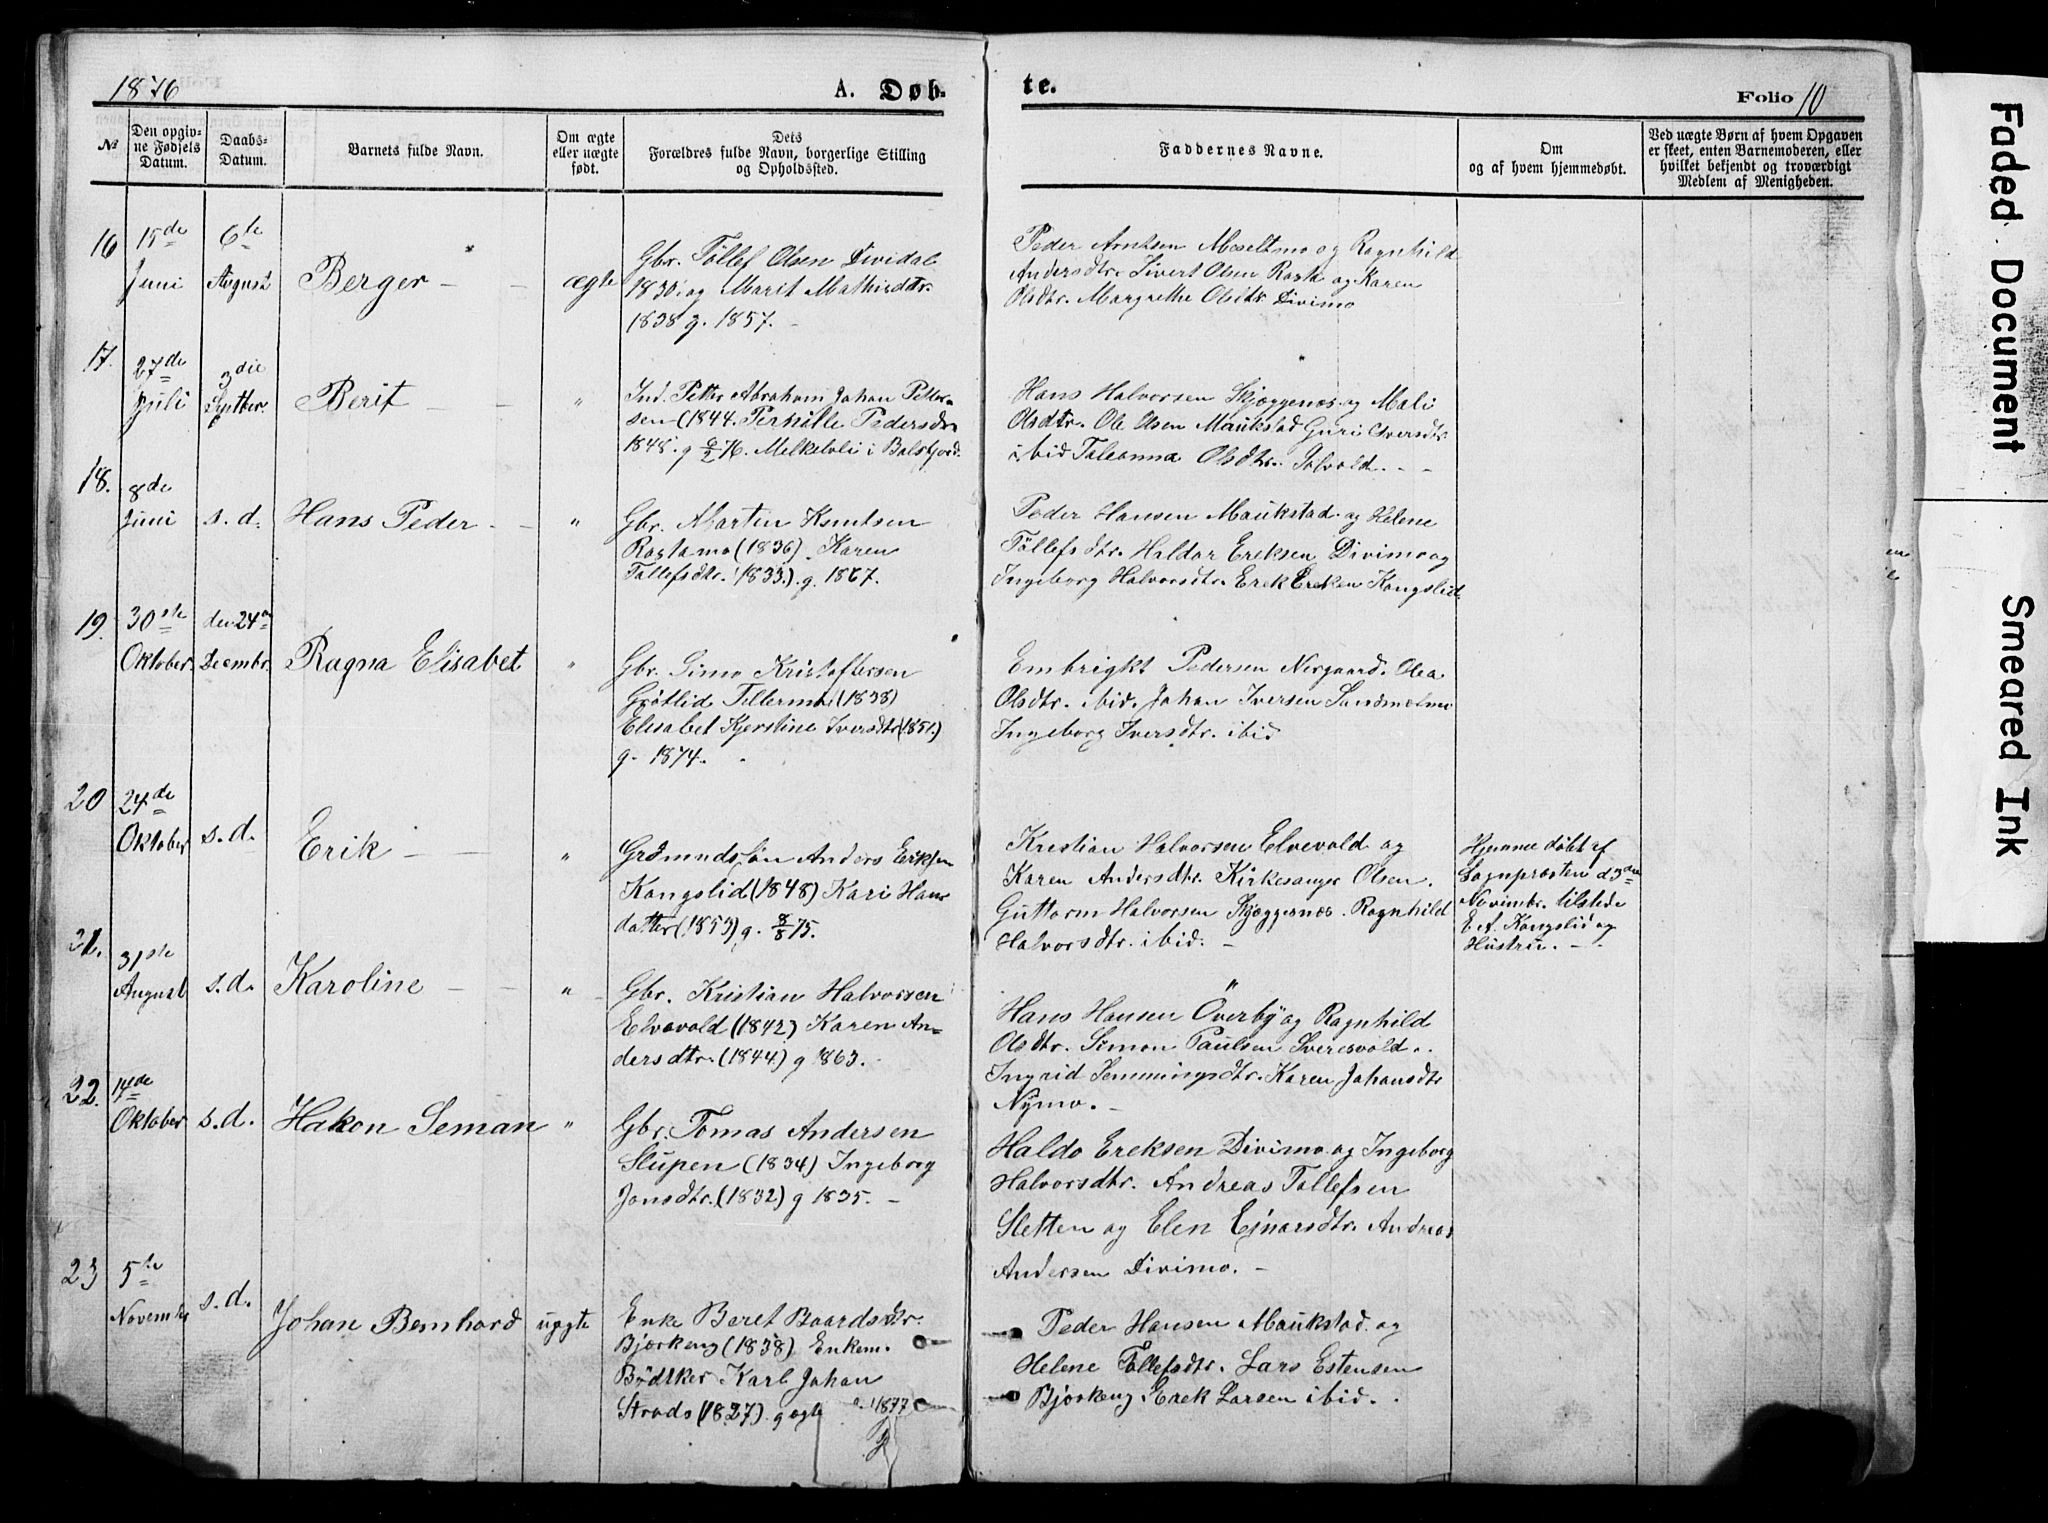 1876
A. Døb-
te.
Folio 10
№
Den opgiv-
ne Fødsels
Datum.
Daabs-
Datum.
Barnets fulde Navn.
Om ægte
eller uægte
født.
Dets
Forældres fulde Navn, borgerlige Stilling
og Opholdssted.
Faddernes Navne.
Om
og af hvem hjemmedøbt.
Ved uægte Børn af hvem Opgaven
er skeet, enten Barnemoderen, eller
hvilket bekjendt og troværdigt
Medlem af Menigheden.
16
15de
Juni
6te
August
Berger
ægte
Gbr. Tollef Olsen Dividal
1830 og Marit Mathisdtr.
1838 g. 1857.
Peder Arntsen Moseltmo og Ragnhild
Andersdtr. Sivert Olsen Rosta og Karen
Olsdtr. Margrethe Olsdtr Divimo
17.
27de
Juli
3die
Septber.
Berit
"
Ind. Petter Abraham Johan Petter-
sen (1844. Pernille Pedersdtr
1848. g 6/2 76. Melkelvli i Balsfjord.
Hans Halvorsen Skjæggenæs og Mali
Olsdtr. Ole Olsen Maukstad Guri Iversdtr
ibid Taleanna Olsdtr. Solvold.
18.
8de
Juni
s. d.
Hans Peder
"
Gbr. Morten Knutsen
Rostamo (1836). Karen
Tollefsdtr. 1833.) g. 1867.
Peder Hansen Maukstad og Helene
Tøllefsdtr. Haldor Ereksen Divimo og
Ingeborg Halvorsdtr. Erek Ereksen Kongslid
19.
30ste
Oktober.
den 24de
Decmbr.
Ragna Elisabet
"
Gbr. Simo Kristoffersen
Grøtlid (1838)
Elisabet Kjerstine Iversdtr (1851.)
g. 1874.
Embrigkt Pedersen Norgaard. Olea
Olsdtr. ibid. Johan Iversen Sandmælmo
Ingeborg Iversdtr. ibid
20
24de
Oktober
s. d.
Erik
"
Grdmandssøn Anders Eriksen
Kongslid (1848) Kari Hans
datter (1853) g. 8/8 75.
Kristian Halvorsen Elvevold og
Karen Andersdtr. Kirkesanger Olsen.
Guttorm Halvorsen Skjæggenæs. Ragnhild
Halvorsdtr. ibid.
Hjemme døbt af
Sognpræsten d 3die
Novembr. tilstede
E. A. Kongslid og
Hustru.
21.
31ste
August
s. d.
Karoline
"
Gbr. Kristian Halvorsen
Elvevold (1842) Karen An-
dersdtr. (1844) g 1863.
Hans Hansen Överby og Ragnhild
Olsdtr. Simon Paulsen Sveresvold.
Ingrid Semmingsdtr. Karen Johansdtr
Nymo.
22.
14de
Oktober
s. d.
Hakon Seman
"
Gbr. Tomas Andersen
Slupen (1834) Ingeborg
Jonsdtr. (1832) g 1835.
Haldo Ereksen Divimo og Ingeborg
Halvorsdtr. Andreas Tollefsen
Sletten og Elen Ejnarsdtr. Andreas
Andersen Divimo.
23
5te
November
s. d.
Johan Bernhard
uægte
Enke Beret Baardsdtr.
Bjørkeng (1838) Enkem.
Bødtker Karl Johan
Strods (1827). g 1877
Peder Hansen Maukstad og
Helene Tollefsdtr. Lars Estensen
Bjørkeng. Erek Larsen ibid.
Faded Document
Smeared Ink